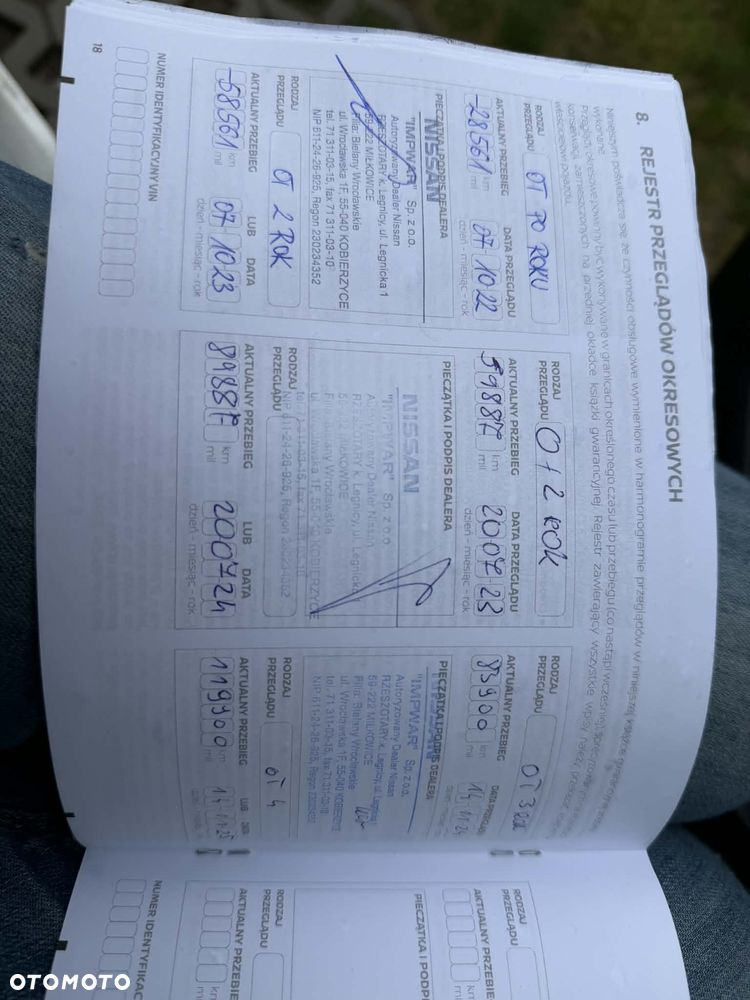 8. REJESTR PRZEGLĄDÓW OKRESOWYCH
Niniejszym poświadcza się, że czynności obsługowe wymienione w harmonogramie przeglądów w niniejszej książce
wykonane
Przeglądy okresowe powinny być wykonywane w granicach określonego czasu lub przebiegu (co nastąpi wcześniej)
zamieszczonych na przedniej okładce książki gwarancyjnej. Rejestr zawierający wszystkie wpisy należy
właścicielowi pojazdu.
RODZAJ
PRZEGLĄDU
OT PO ROKU
AKTUALNY PRZEBIEG
-28561 km
mil
DATA PRZEGLĄDU
07 10 22
dzień - miesiąc - rok
PIECZĄTKA I PODPIS DEALERA
NISSAN
"IMPWAR" Sp. z o.o.
Autoryzowany Dealer Nissan
RZESZOTARY k. Legnicy, ul. Legnicka 1
59-222 MIŁKOWICE
Filia: Bielany Wrocławskie
ul. Wrocławska 1F, 55-040 KOBIERZYCE
tel. 71 311-03-15, fax 71 311-03-10
NIP 611-24-26-925, Regon 230234352
RODZAJ
PRZEGLĄDU
OT 2 ROK
AKTUALNY PRZEBIEG
-58561 km
mil
LUB DATA
07 10 23
dzień - miesiąc - rok
RODZAJ
PRZEGLĄDU
O+2 ROK
AKTUALNY PRZEBIEG
59887 km
mil
DATA PRZEGLĄDU
20 07 23
dzień - miesiąc - rok
PIECZĄTKA I PODPIS DEALERA
NISSAN
"IMPWAR" Sp. z o.o.
RODZAJ
PRZEGLĄDU
AKTUALNY PRZEBIEG
89887 km
mil
LUB DATA
20 07 24
dzień - miesiąc - rok
RODZAJ
PRZEGLĄDU
OT 3 ROK
AKTUALNY PRZEBIEG
83900 km
mil
DATA PRZEGLĄDU
14 11 24
PIECZĄTKA I PODPIS DEALERA
NISSAN
"IMPWAR" Sp. z o.o.
Autoryzowany Dealer Nissan
RZESZOTARY k. Legnicy, ul. Legnicka 1
59-222 MIŁKOWICE
Filia: Bielany Wrocławskie
ul. Wrocławska 1F, 55-040 KOBIERZYCE
tel. 71 311-03-15, fax 71 311-03-10
NIP 611-24-26-925, Regon 230234352
RODZAJ
PRZEGLĄDU
OT 4
AKTUALNY PRZEBIEG
119900 km
mil
LUB DATA
14 11 25
NUMER IDENTYFIKACYJNY VIN
18
RODZAJ
PRZEGLĄDU
AKTUALNY PRZEBIE
km
PIECZĄTKA I PODPI
RODZAJ
PRZEGLĄDU
AKTUALNY PRZEBIE
km
mi
NUMER IDENTYFIKAC
OTOMOTO